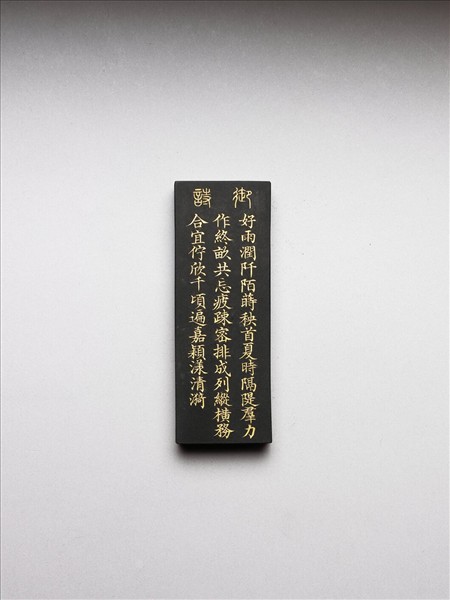 御詩
好雨潤阡陌蒔秧首夏時隔隄羣力
作終畝共忘疲疎密排成列縱橫務
合宜佇欣千頃遍嘉穎漾清漪